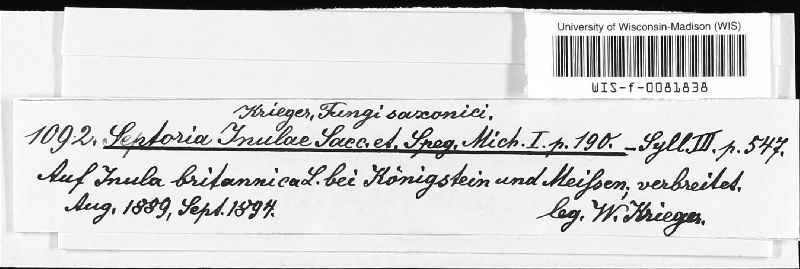 University of Wisconsin-Madison (WIS)
WIS-f-0081838
Krieger, Fungi saxonici.
1092. Septoria Inulae Sacc. et. Speg. Mich. I. p. 190. – Syll. III. p. 547.
Auf Inula britannica L. bei Königstein und Meissen, verbreitet.
Aug. 1889, Sept. 1894. leg. W. Krieger.